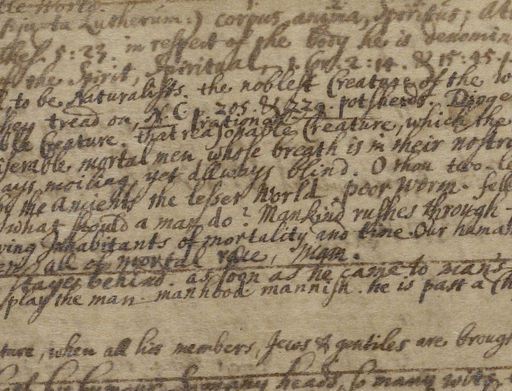 (juxta Lutherum:) corpus, anima, spiritus; a
Thes. 5:23. in respect of the body he is denomin
of the Spirit, Spiritual. 1. Cor. 2:14. & 15:45.
to be Naturalists. the noblest Creature of the
they tread on, N. C. p. 205. & 229. potsherds. Dioge
ble Creature. that reasonable Creature, which the
rational
iserable mortal men whose breath is in their nostri
ays moiling yet allways blind. O thou two-le
by the Ancients the lesser World. poor worm. fell
what should a man do? Mankind rushes through
ving inhabitants of mortality and time. Our humani
en all of mortal race, Man.
stayes behind. as soon as he came to man's
play the man manhood mannish. he is past a Ch
ture, when all his members, Jews & gentiles are brough
many heads, so many wits